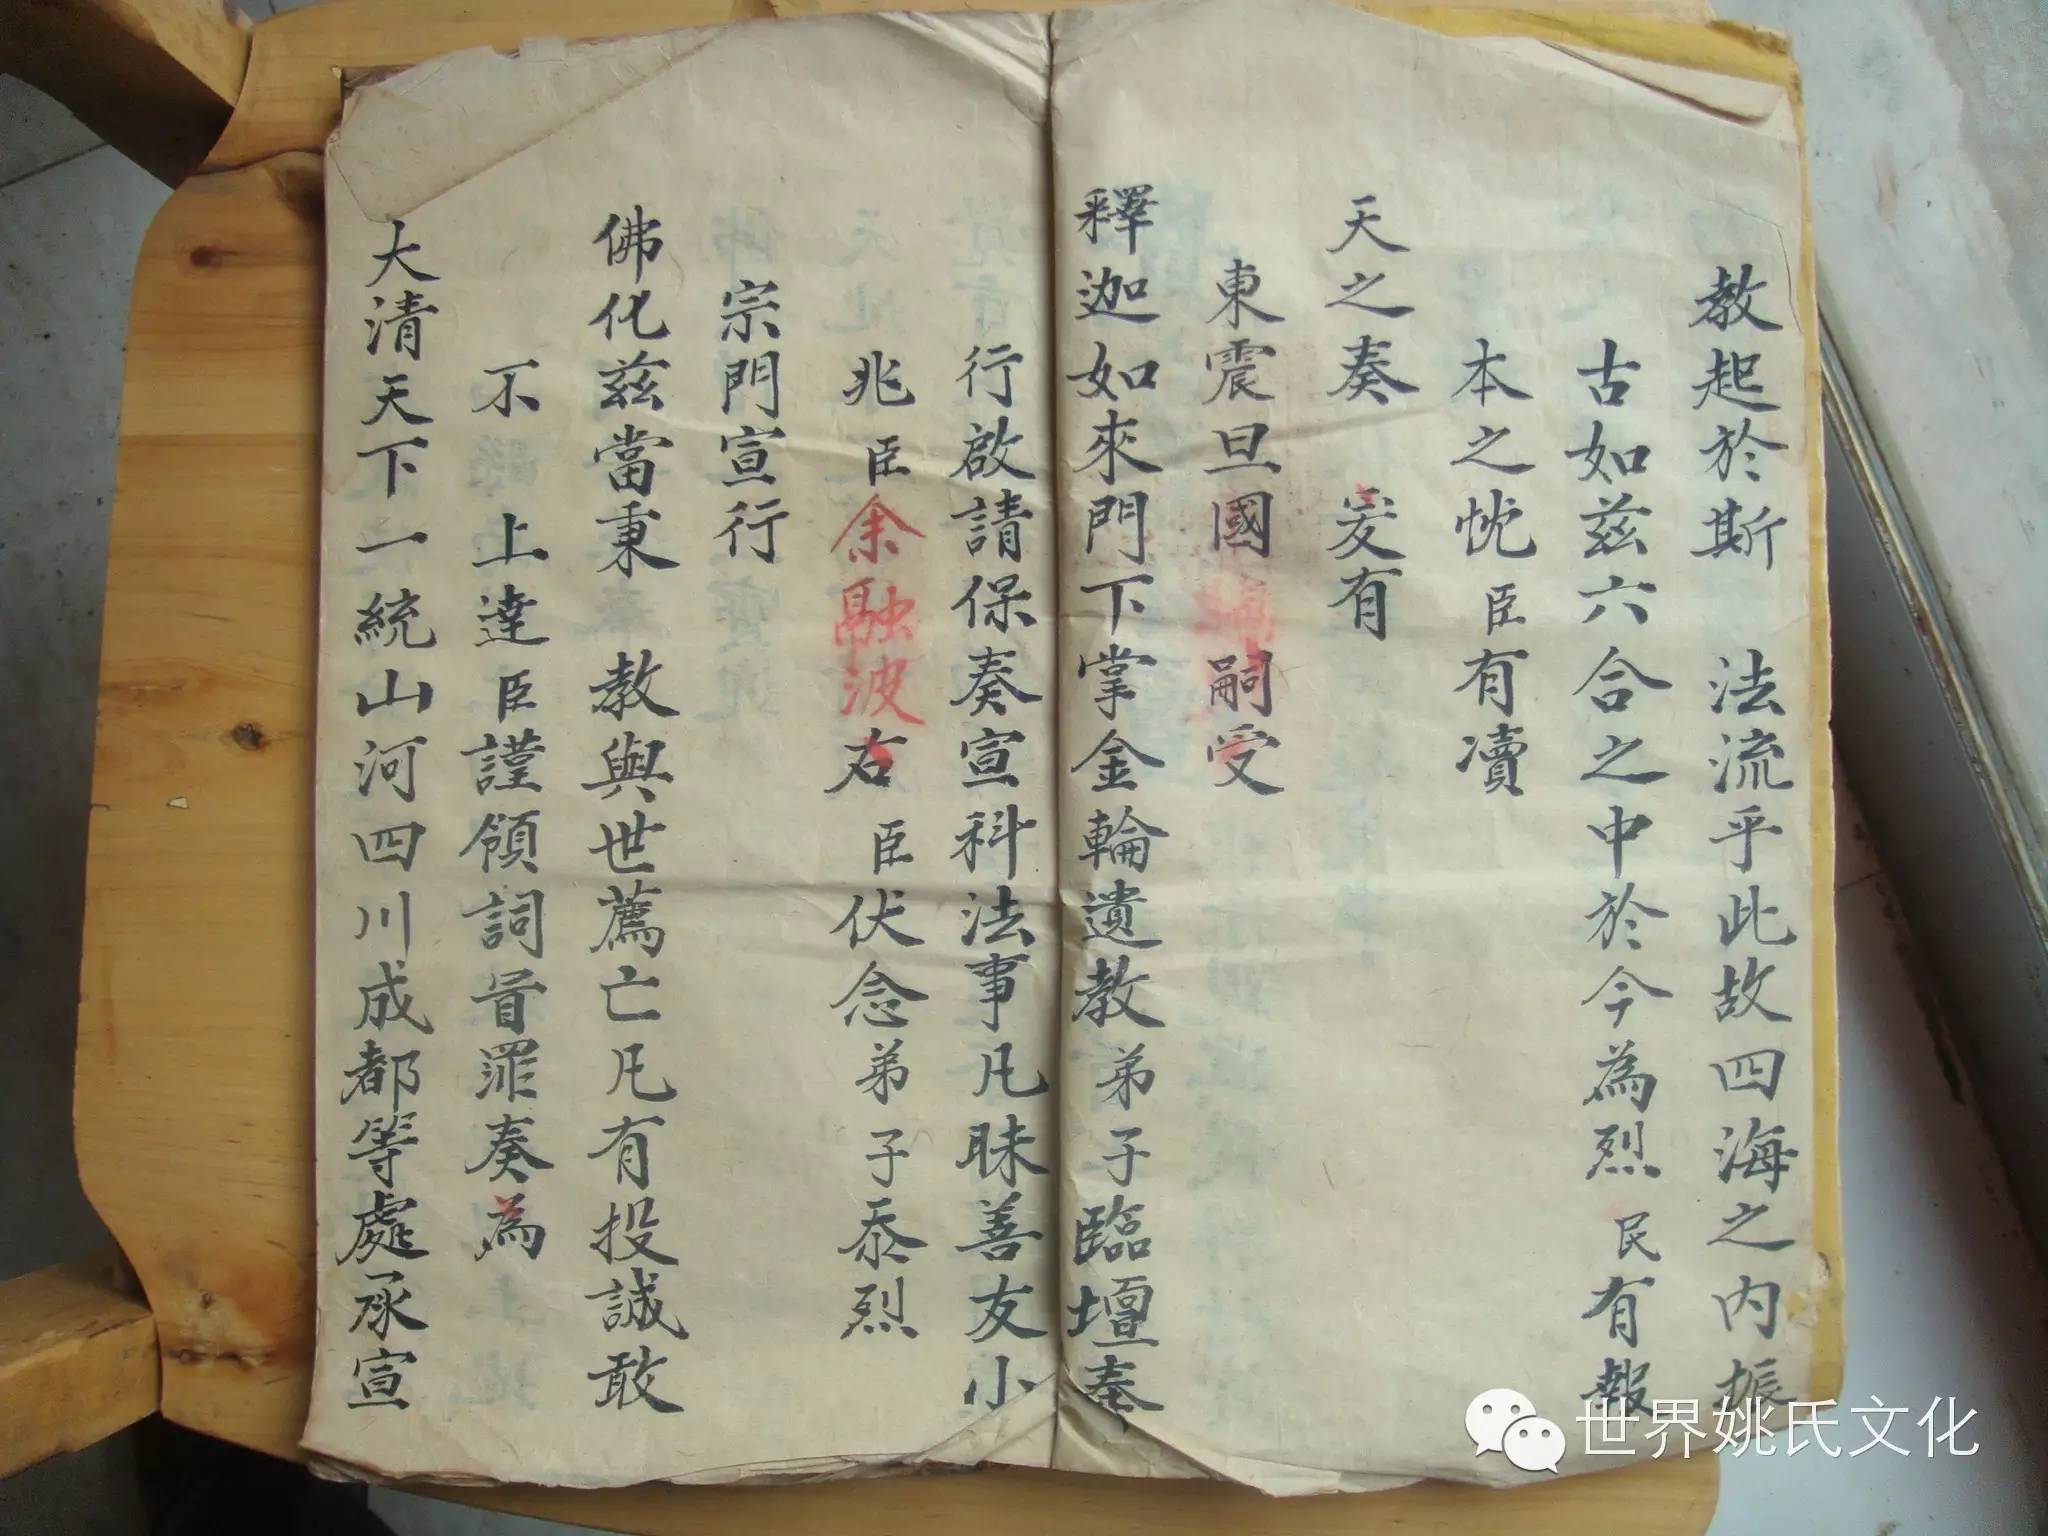 教起於斯　法流乎此故四海之内振
古如茲六合之中於今為烈民有報
本之忱臣有凟
天之奏　爰有
東震旦國　嗣受
釋迦如來門下掌金輪遺教弟子臨壇奉
行啟請保奏宣科法事凡昧善友小
兆臣余融波右臣伏念弟子忝烈
宗門宣行
佛化茲當秉　教與世薦亡凡有投誠敢
不　上達臣謹領詞冒罪奏為
大清天下一統山河四川成都等處承宣
世界姚氏文化